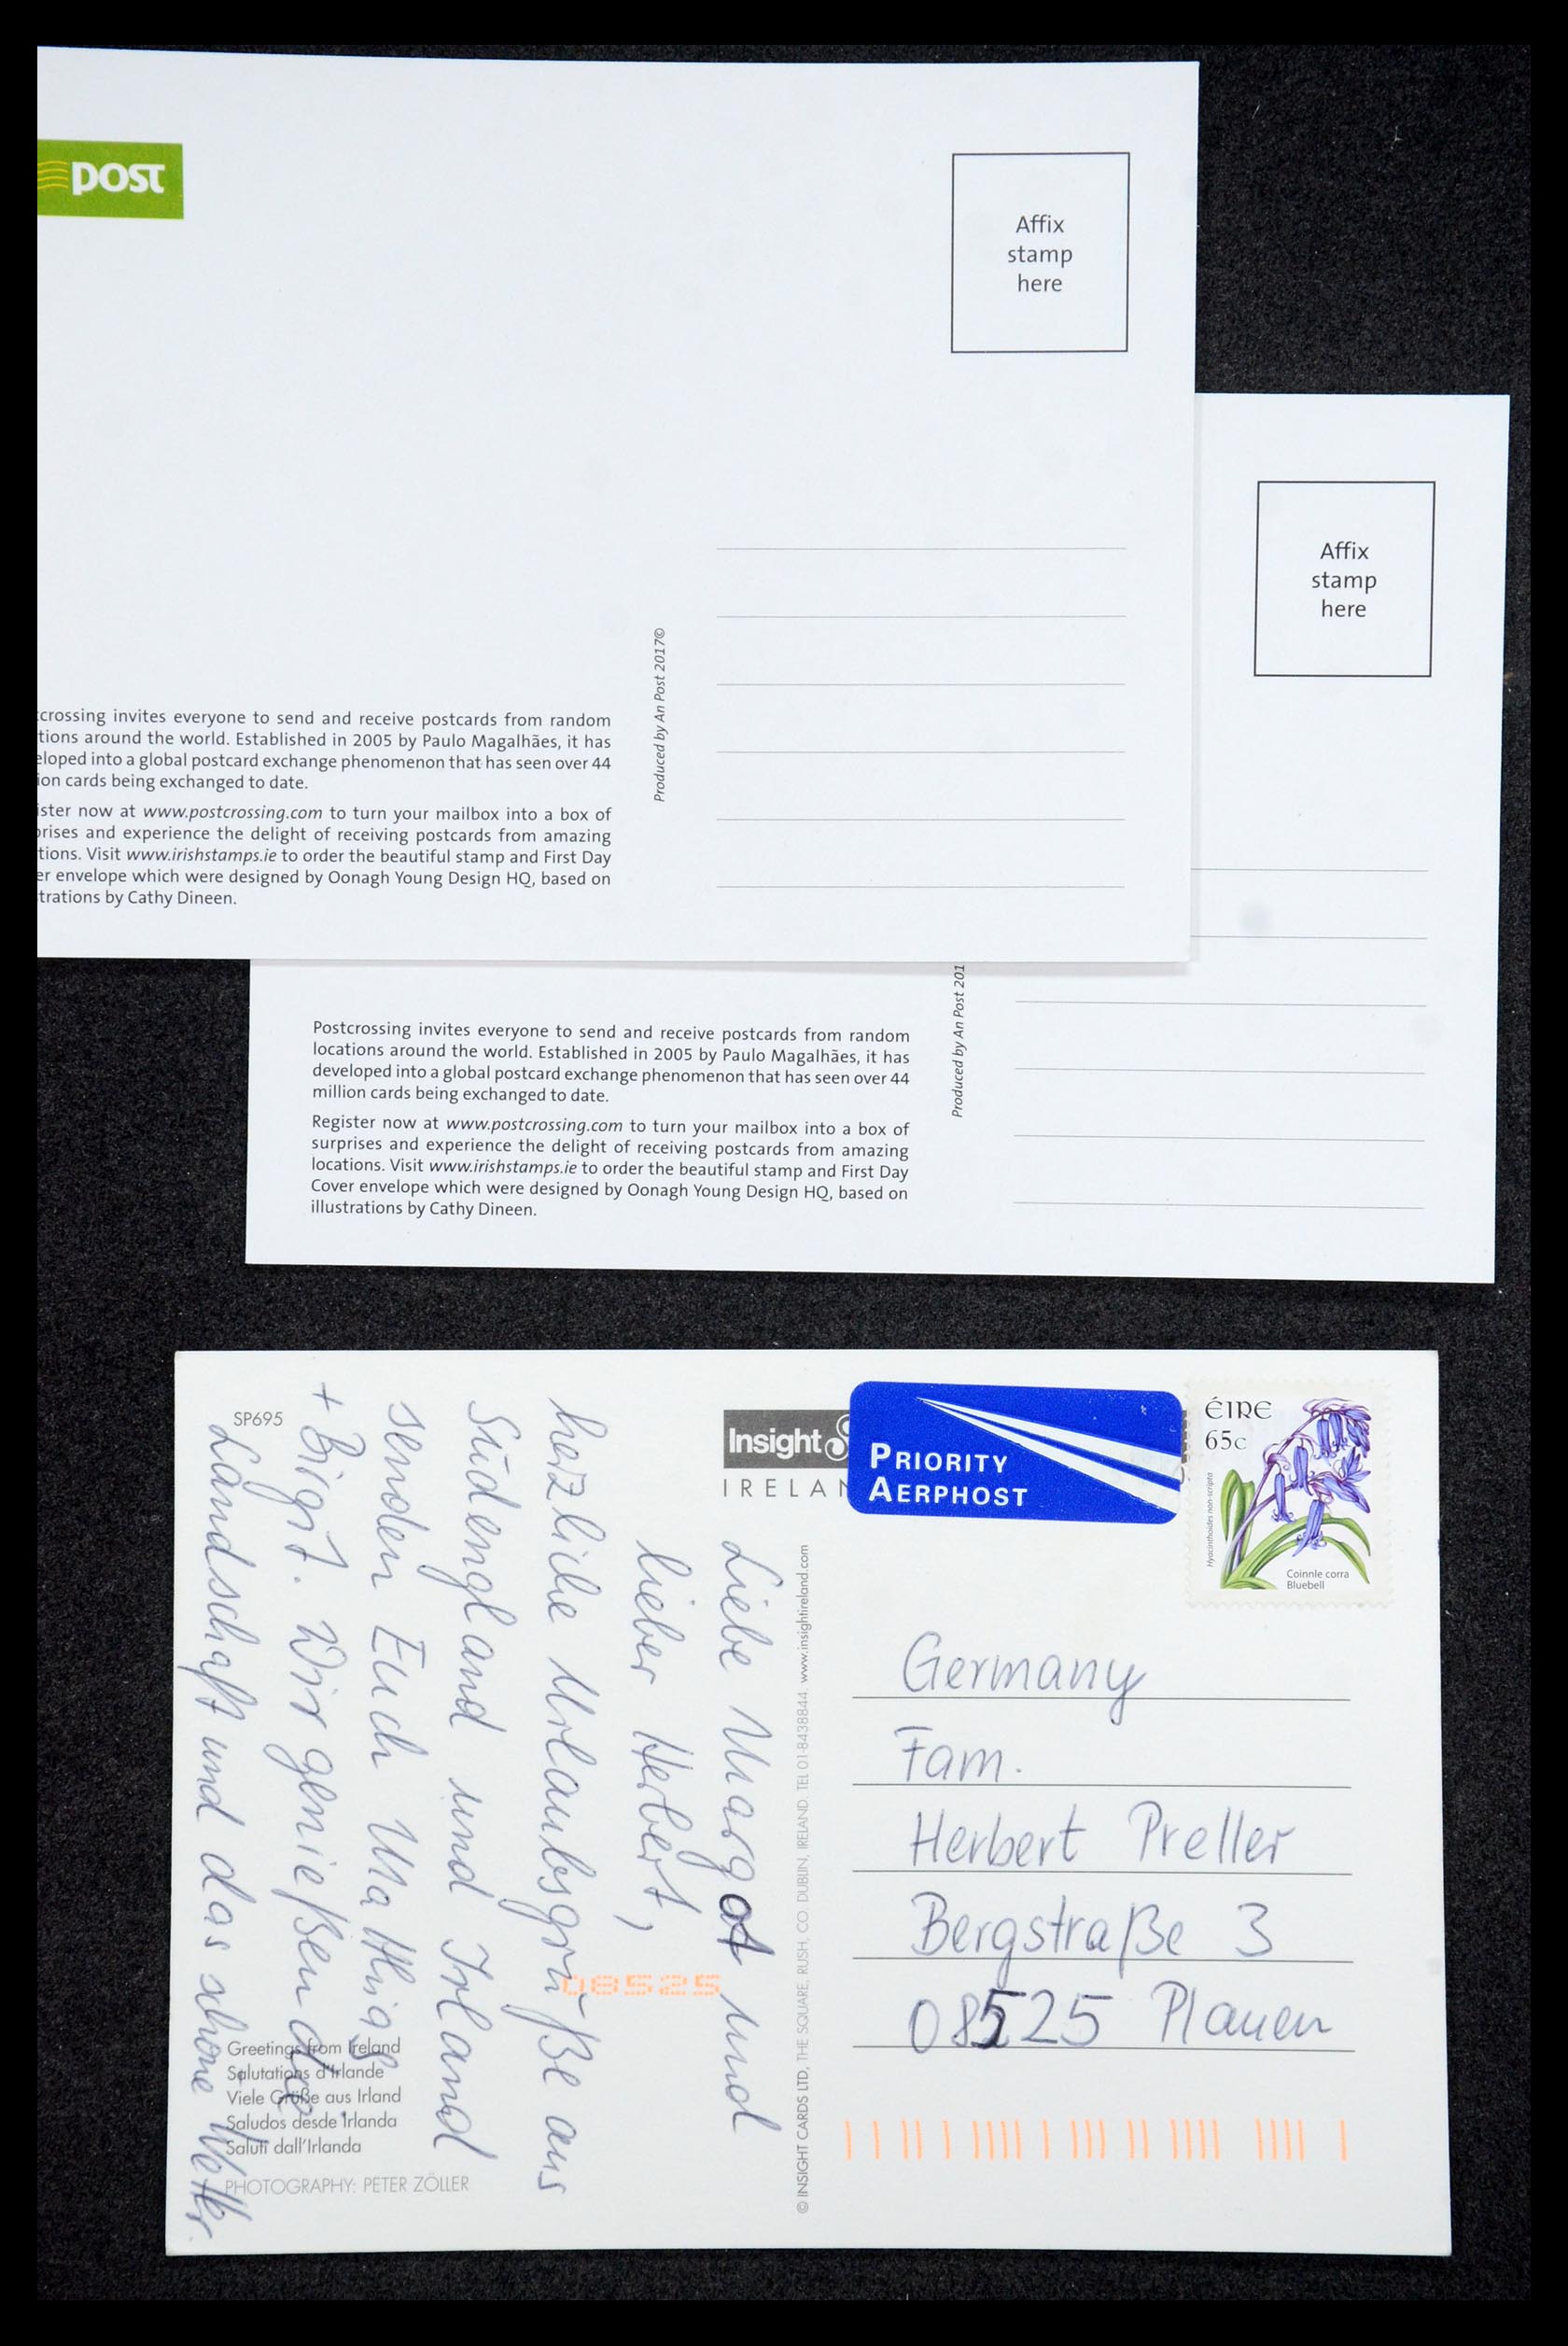 post
Affix
stamp
here
crossing invites everyone to send and receive postcards from random
tions around the world. Established in 2005 by Paulo Magalhães, it has
eloped into a global postcard exchange phenomenon that has seen over 44
ion cards being exchanged to date.
ister now at www.postcrossing.com to turn your mailbox into a box of
prises and experience the delight of receiving postcards from amazing
tions. Visit www.irishstamps.ie to order the beautiful stamp and First Day
er envelope which were designed by Oonagh Young Design HQ, based on
trations by Cathy Dineen.
Produced by An Post 2017©
Affix
stamp
here
Postcrossing invites everyone to send and receive postcards from random
locations around the world. Established in 2005 by Paulo Magalhães, it has
developed into a global postcard exchange phenomenon that has seen over 44
million cards being exchanged to date.
Register now at www.postcrossing.com to turn your mailbox into a box of
surprises and experience the delight of receiving postcards from amazing
locations. Visit www.irishstamps.ie to order the beautiful stamp and First Day
Cover envelope which were designed by Oonagh Young Design HQ, based on
illustrations by Cathy Dineen.
Produced by An Post 201
SP695
Insight
IRELAN
PRIORITY
AERPHOST
ÉIRE
65c
Hyacinthoides non-scripta
Coinnle corra
Bluebell
Liebe Margot und
lieber Herbert,
herzliche Urlaubsgrüße aus
Südengland und Irland
senden Euch Matthias
+ Birgit. Wir genießen die
Landschaft und das schöne Wetter.
08525
Greetings from Ireland
Salutations d'Irlande
Viele Grüße aus Irland
Saludos desde Irlanda
Saluti dall'Irlanda
PHOTOGRAPHY: PETER ZÖLLER
© INSIGHT CARDS LTD, THE SQUARE, RUSH, CO. DUBLIN, IRELAND. TEL 01-8438844 www.insightireland.com
Germany
Fam.
Herbert Preller
Bergstraße 3
08525 Plauen